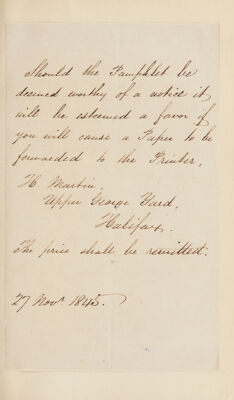 Should the Pamphlet be
deemed worthy of a notice it
will be esteemed a favor if
you will cause a Paper to be
forwarded to the Printer,
H. Martin,
Upper George Yard,
Halifax.
The price shall be remitted.
27 Novr. 1845.